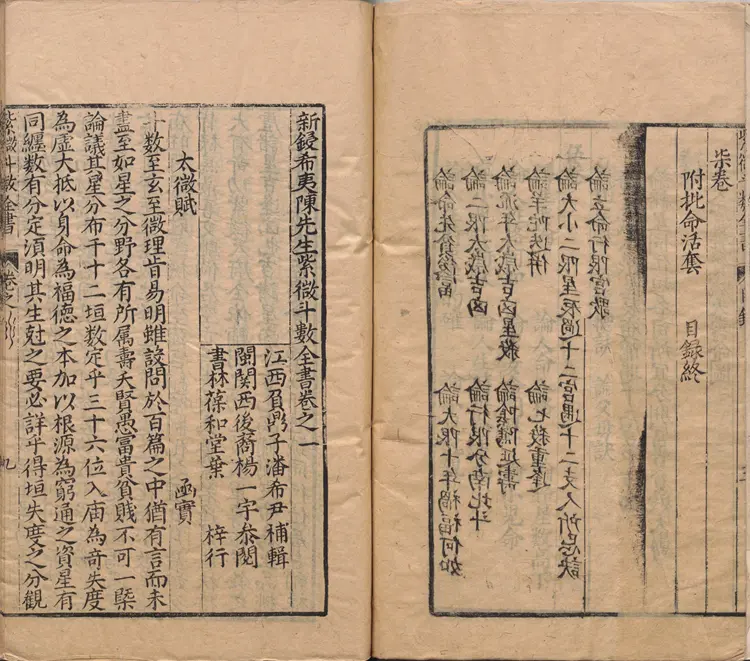 柒卷
附批命活套 目錄終
論立命行限宮歌
論大小二限星辰過十二宮遇十二支人所忌訣
論羊陀迭併 論七殺重逢
論流年太歲吉凶星殺 論陰騭延壽
論二限太歲吉凶 論行限分南北斗
論命先貧後富 論大限十年禍福何如
新鋟希夷陳先生紫微斗數全書卷之一
江西負鼎子潘希尹補輯
閩關西後裔楊一宇參閱
書林葆和堂葉 梓行
太微賦 函實
斗數至玄至微理肯易明雖設問於百篇之中猶有言而未
盡至如星之分野各有所属壽夭賢愚富貴貧賤不可一槩
論議其星分布千十二垣數定乎三十六位入庙為奇失度
為虛大抵以身命為福德之本加以根源為窮通之資星有
同纏數有分定湏明其生尅之要必詳乎得垣失度之分觀
紫微斗數全書 卷之